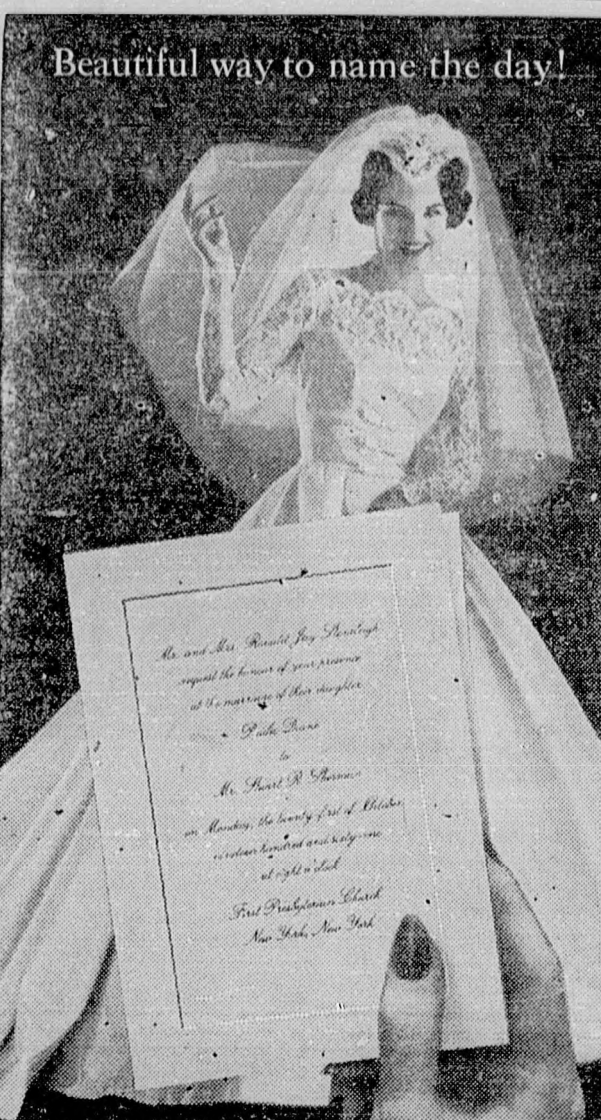 Beautiful way to name the day!
Mr. and Mrs. Ronald Jay
request the honour of your presence
at the marriage of their daughter
Diane
to
Mr. Stuart R. Sherman
on Monday, the twenty-first of
nineteen hundred and sixty-one
at eight o'clock
First Presbyterian Church
New York, New York